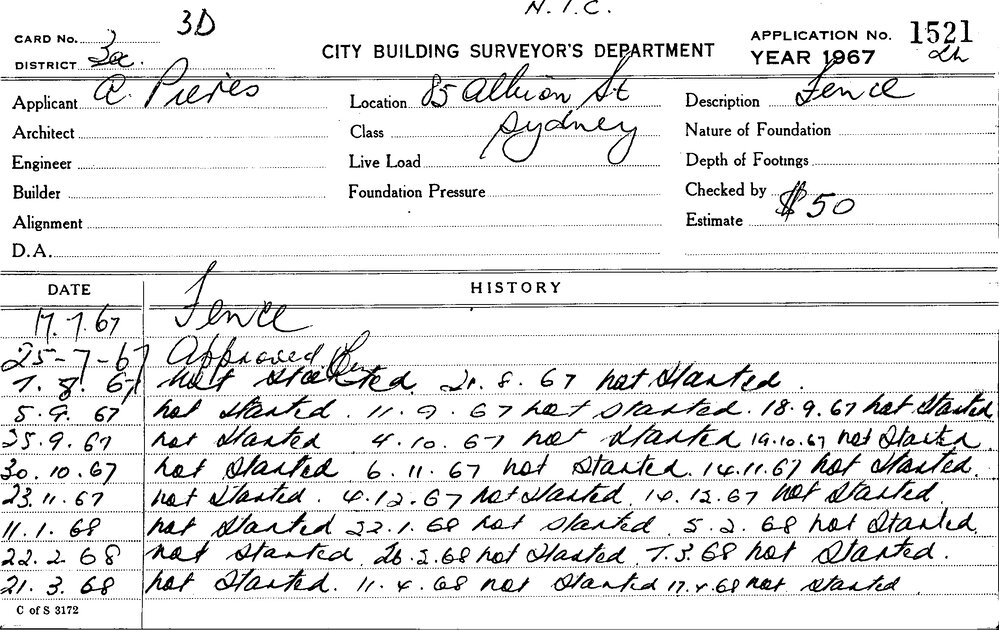 N.I.C.
3D
CARD No. 3
CITY BUILDING SURVEYOR'S DEPARTMENT
APPLICATION No. 1521
DISTRICT 3a.
YEAR 1967
Applicant A. Pieries
Location 85 Albion St
Description Fence
Architect
Class Sydney
Nature of Foundation
Engineer
Live Load
Depth of Footings
Builder
Foundation Pressure
Checked by
Alignment
Estimate $50
D.A.
DATE HISTORY
17.7.67 Fence
25-7-67 Approved
7.8.67 not started. 21.8.67 not started.
5.9.67 not started. 11.9.67 not started. 18.9.67 not started
25.9.67 not started 4.10.67 not started 19.10.67 not started.
30.10.67 not started 6.11.67 not started. 14.11.67 not started.
23.11.67 not started. 4.12.67 not started. 14.12.67 not started.
11.1.68 not started 22.1.68 not started. 5.2.68 not started.
22.2.68 not started. 26.2.68 not started. 7.3.68 not started.
21.3.68 not started. 11.4.68 not started 17.4.68 not started
C of S 3172